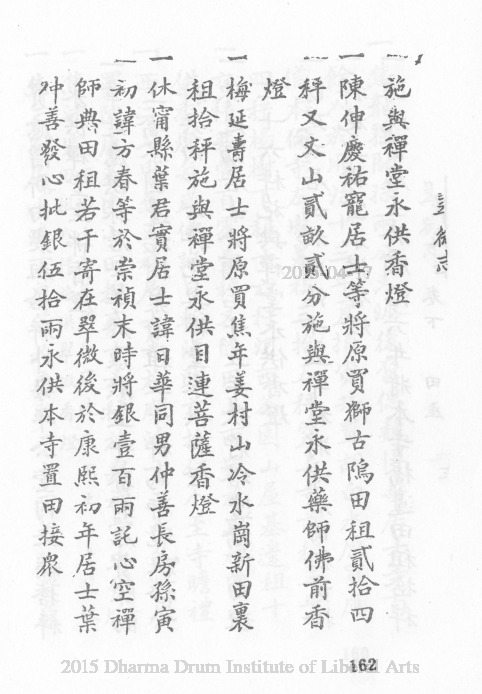 施與禪堂永供香燈
一陳仲慶祐寵居士等將原買獅古隝田租貳拾四
秤又丈山貳畝貳分施與禪堂永供藥師佛前香
燈
一梅延壽居士將原買焦年姜村山冷水崗新田裏
租拾秤施與禪堂永供目連菩薩香燈
一休甯縣葉君實居士諱日華同男仲善長房孫寅
初諱方春等於崇禎末時將銀壹百兩託心空禪
師典田租若干寄在翠微後於康熙初年居士葉
仲善發心批銀伍拾兩永供本寺置田接眾
162
2015/04/17
2015 Dharma Drum Institute of Liberal Arts